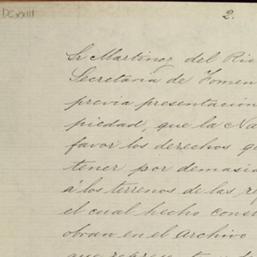 DCXXIII
2.
Sr Martinez del Rio
Secretaría de Fomen
previa presentación
piedad, que la Na
favor los derechos q
tener por demasi
á los terrenos de las
el cual hecho cons
obran en el archivo